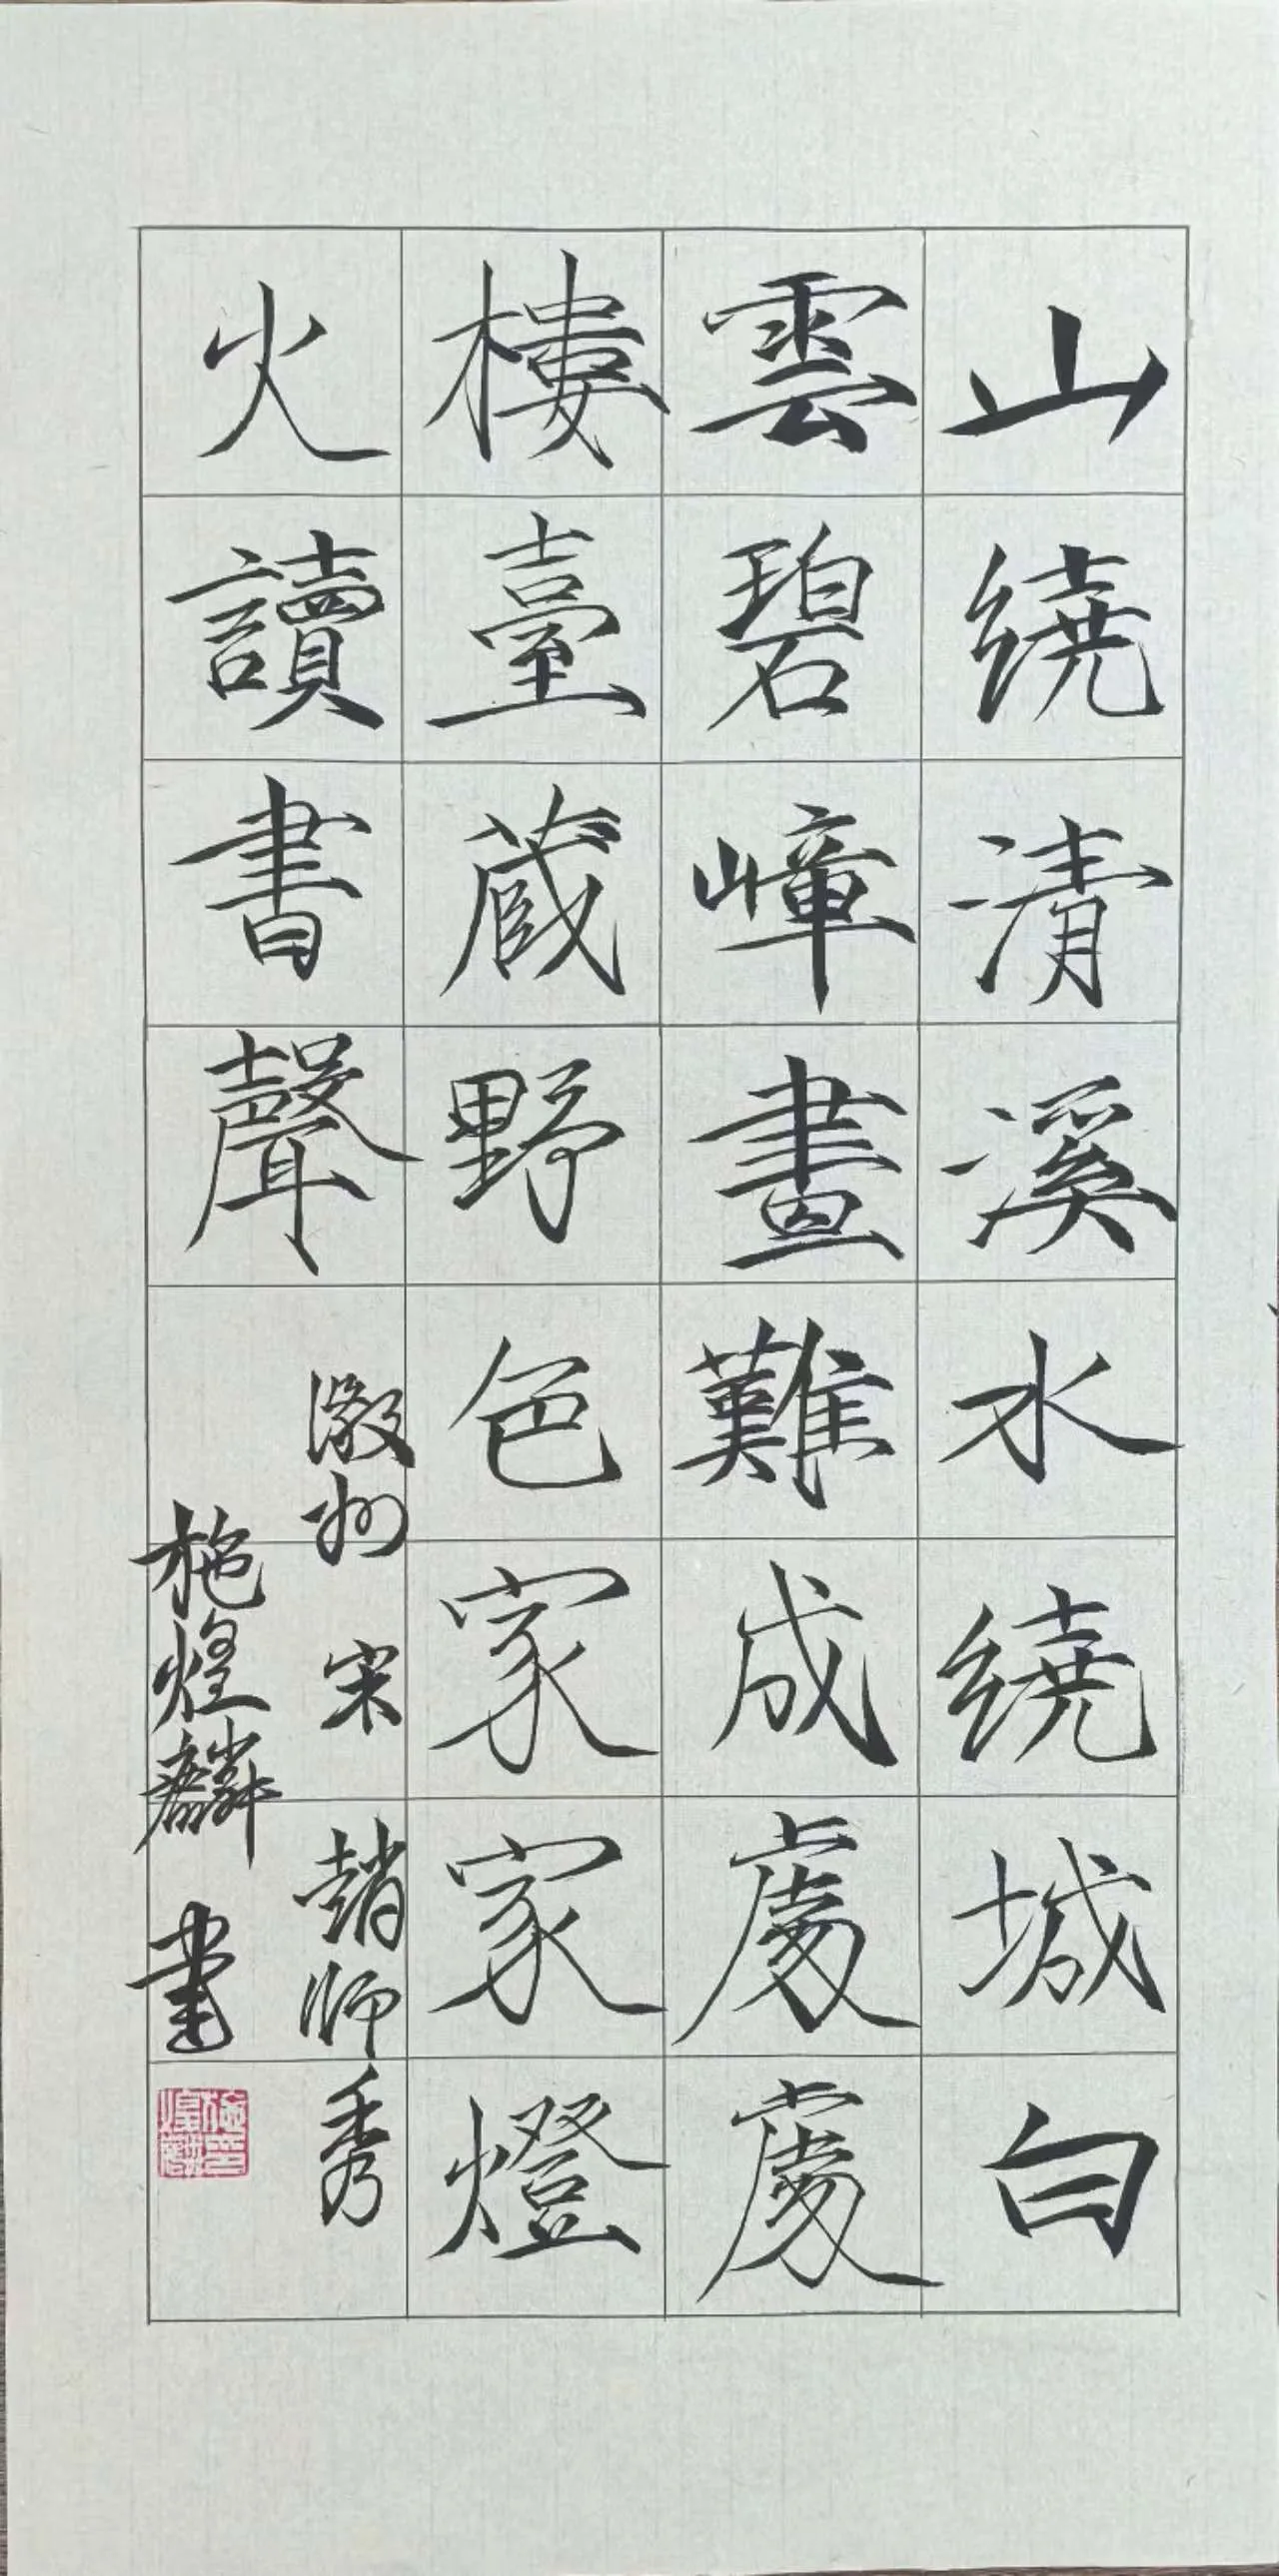 山绕清溪水绕城白
雲碧嶂畫難成處處
樓臺藏野色家家燈
火讀書聲
徽州 宋 趙師秀
施煌麟 書
施印煌麟